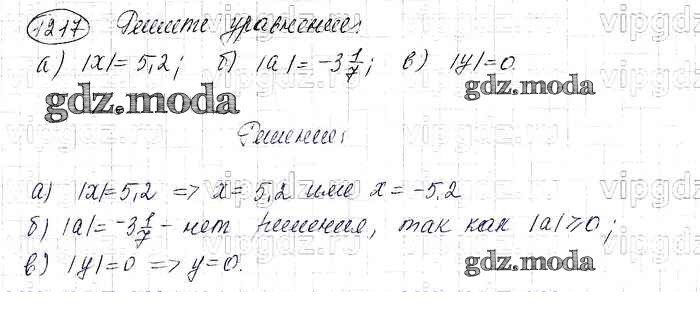 1217 Решите уравнение:
а) |x|= 5,2; б) |a|= -3 1/7; в) |y|=0.
gdz.moda
gdz.moda
Решение:
а) |x|=5,2 => x= 5,2 или x= -5,2
б) |a|= -3 1/7 - нет решения, так как |a|⩾0;
в) |y|=0 => y=0.
gdz.moda
vipgdz.ru
vipgdz.ru
vipgdz.ru